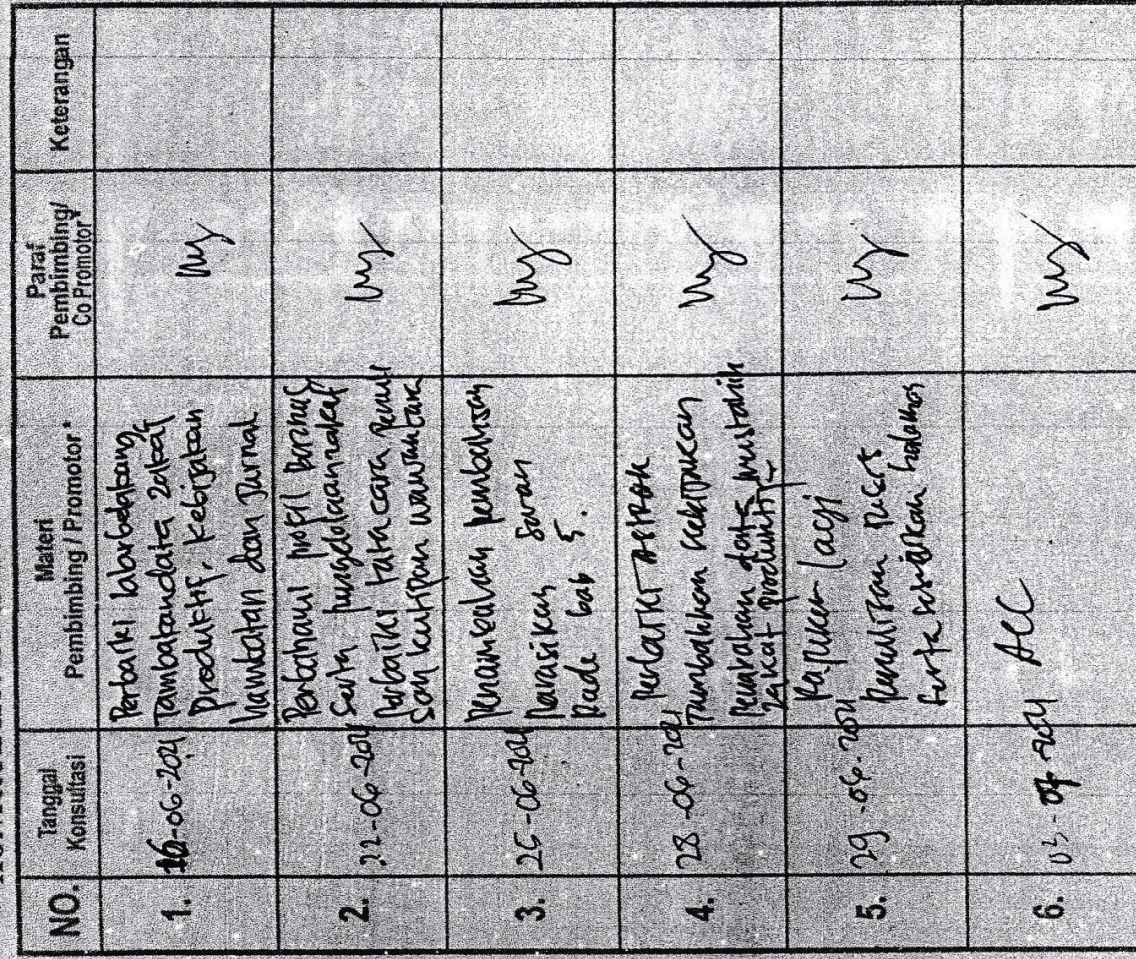 NO.
Tanggal
Konsultasi
Materi
Pembimbing / Promotor*
Paraf
Pembimbing/
Co Promotor*
Keterangan
1.
16-06-2021
Perbaiki
Tambahan data zakat
Produktif, kebijakan
hambatan dan Jurnal
2.
22-06-2021
profil baznas
serta pengelolaan zakat
Perbaiki tata cara
dan kutipan wawancara
3.
25-06-2021
pembahasan
Narasikan saran
Pada bab 5.
4.
28-06-2021
Perbaiki
Tambahkan
data mustahik
zakat produktif
5.
29-06-2021
Rapikan lagi
Penulisan
serta halaman
6.
02-07-2021
ACC